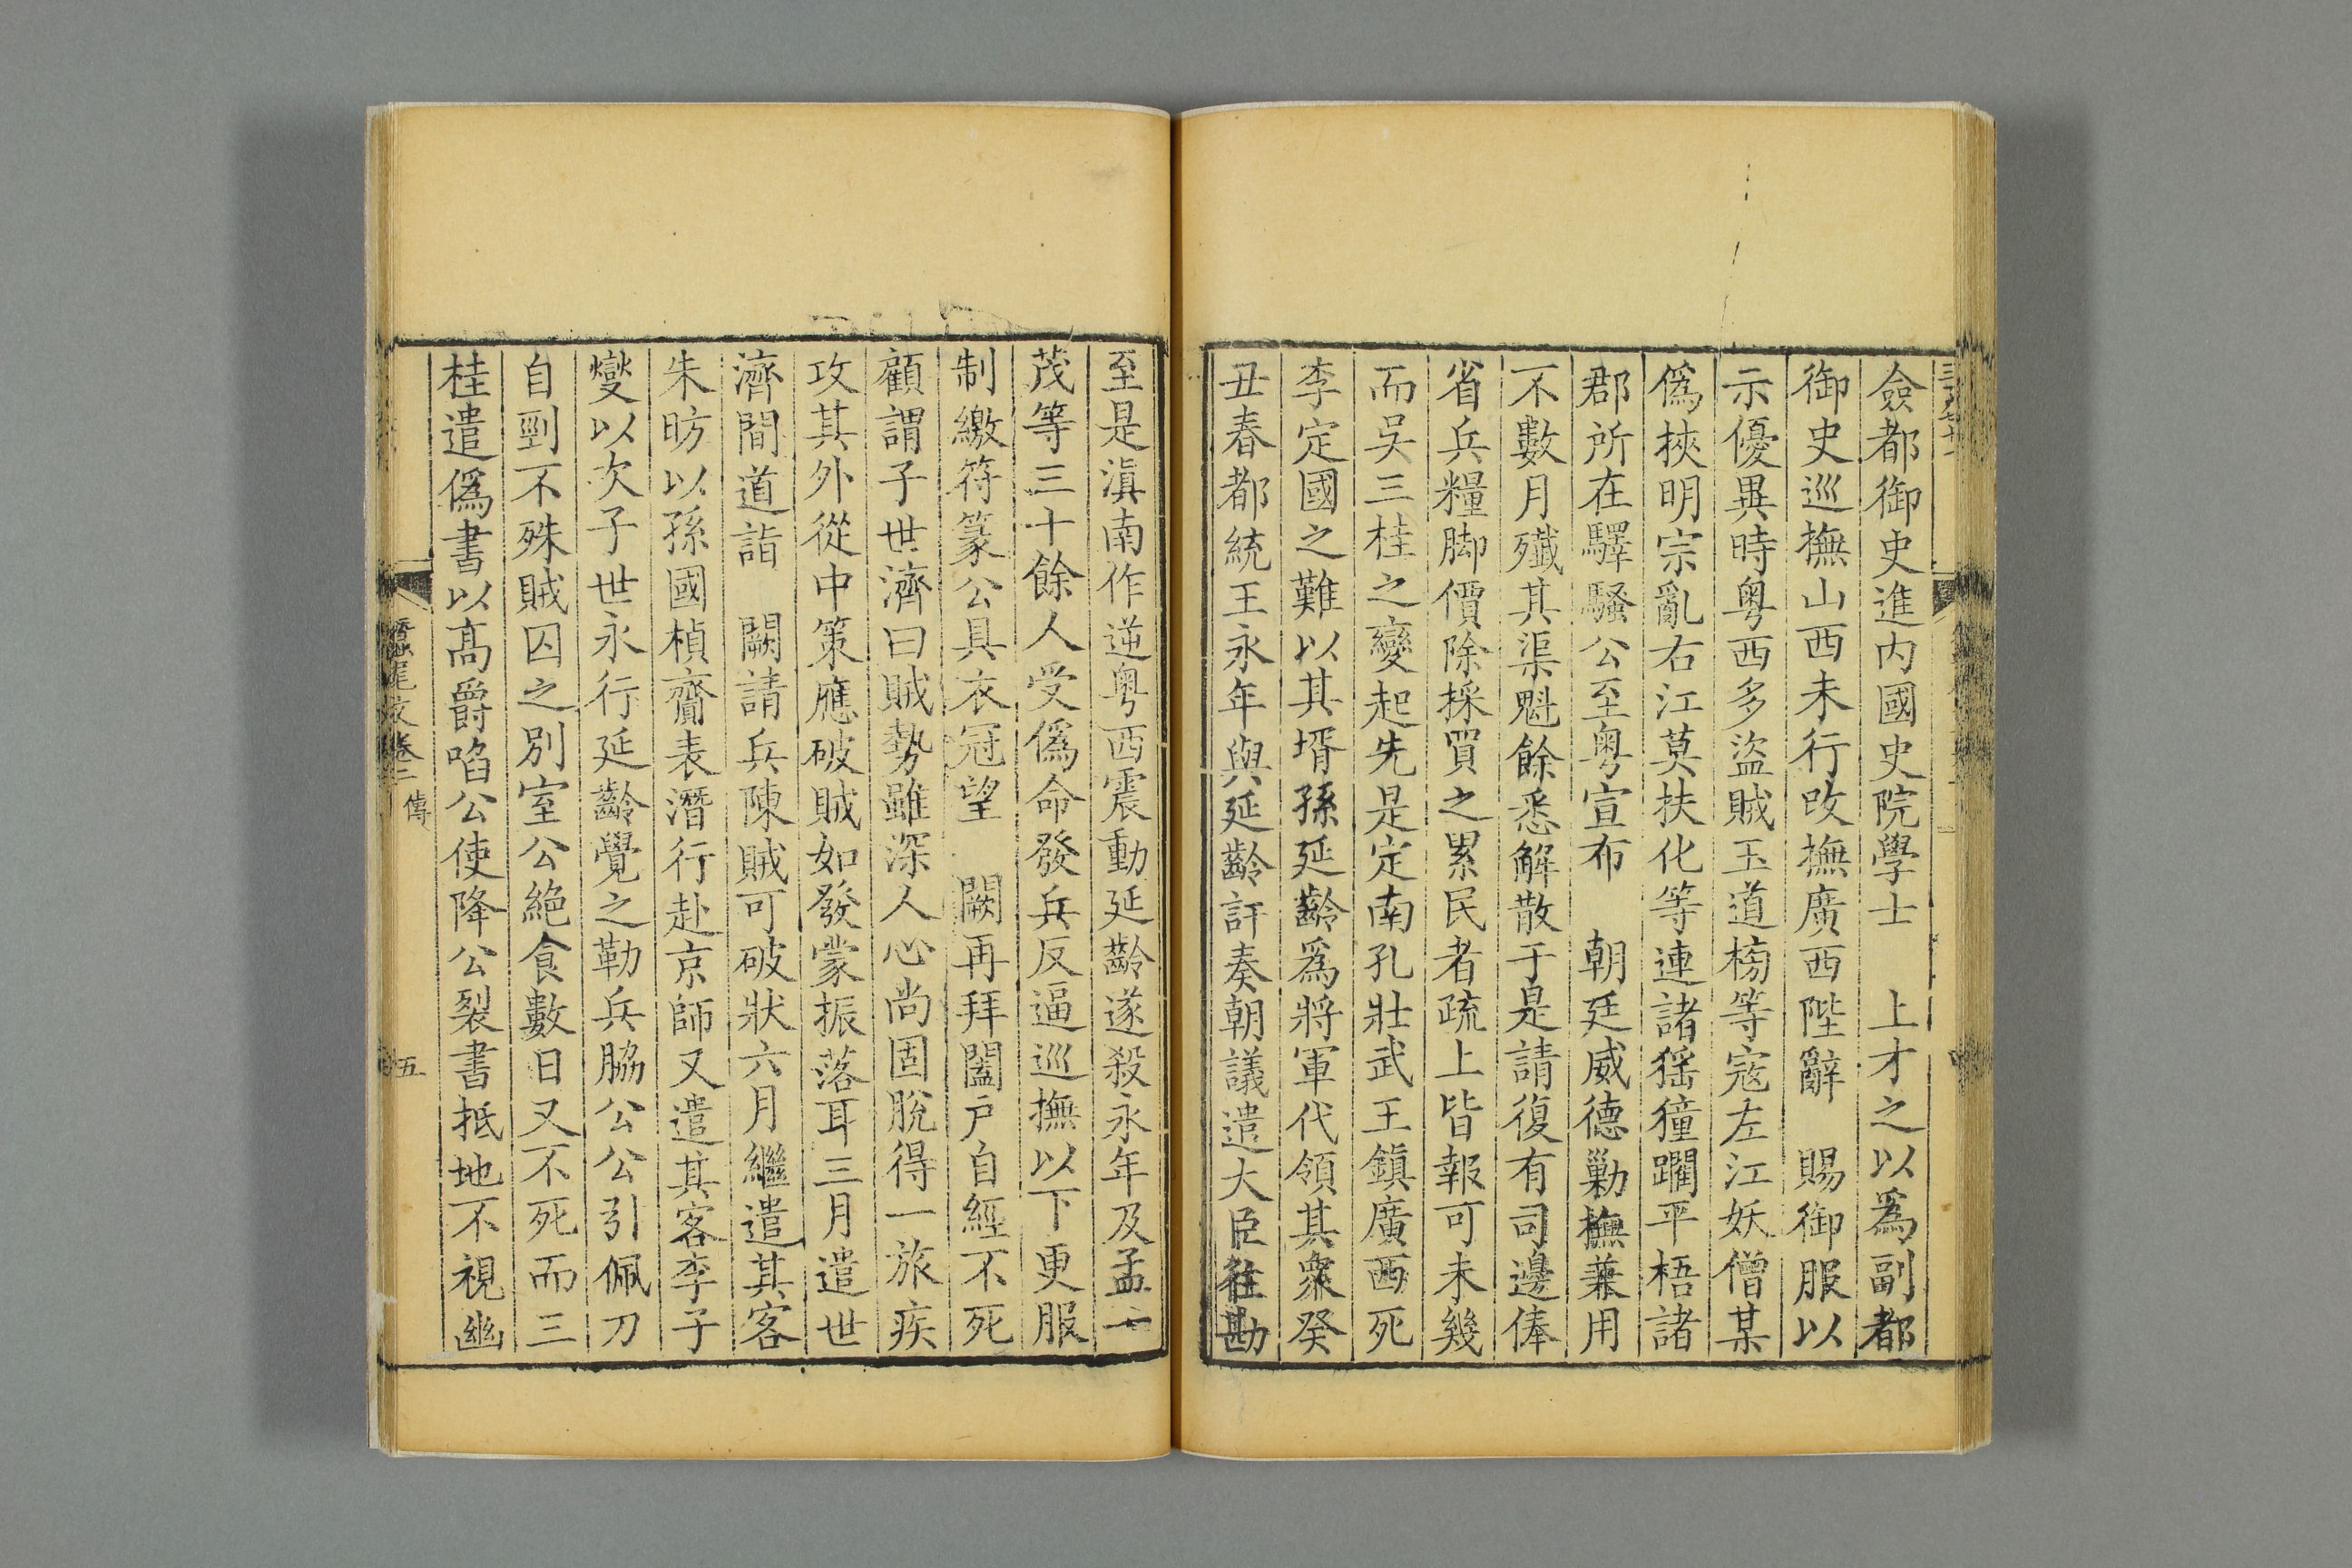 僉都御史進内國史院學士　上才之以爲副都
御史巡撫山西未行改撫廣西陛辭　賜御服以
示優異時粤西多盜賊玉道榜等寇左江妖僧某
僞挾明宗亂右江莫扶化等連諸猺獞躙平梧諸
郡所在驛騷公至粤宣布　朝廷威德勦撫兼用
不數月殱其渠魁餘悉解散于是請復有司邊俸
省兵糧脚價除採買之累民者疏上皆報可未幾
而吳三桂之變起先是定南孔壯武王鎭廣西死
李定國之難以其壻孫延齡爲將軍代領其衆癸
丑春都統王永年與延齡訐奏朝議遣大臣往勘
至是滇南作逆粤西震動延齡遂殺永年及孟一
茂等三十餘人受僞命發兵反逼巡撫以下更服
制繳符篆公具衣冠望　闕再拜闔戶自經不死
顧謂子世濟曰賊勢雖深人心尚固脫得一旅疾
攻其外從中策應破賊如發蒙振落耳三月遣世
濟間道詣　闕請兵陳賊可破狀六月繼遣其客
朱昉以孫國楨齎表潛行赴京師又遣其客李子
燮以次子世永行延齡覺之勒兵脇公公引佩刀
自剄不殊賊囚之別室公絶食數日又不死而三
桂遣僞書以高爵啗公使降公裂書抵地不視幽
蠶尾文卷二　傳　五